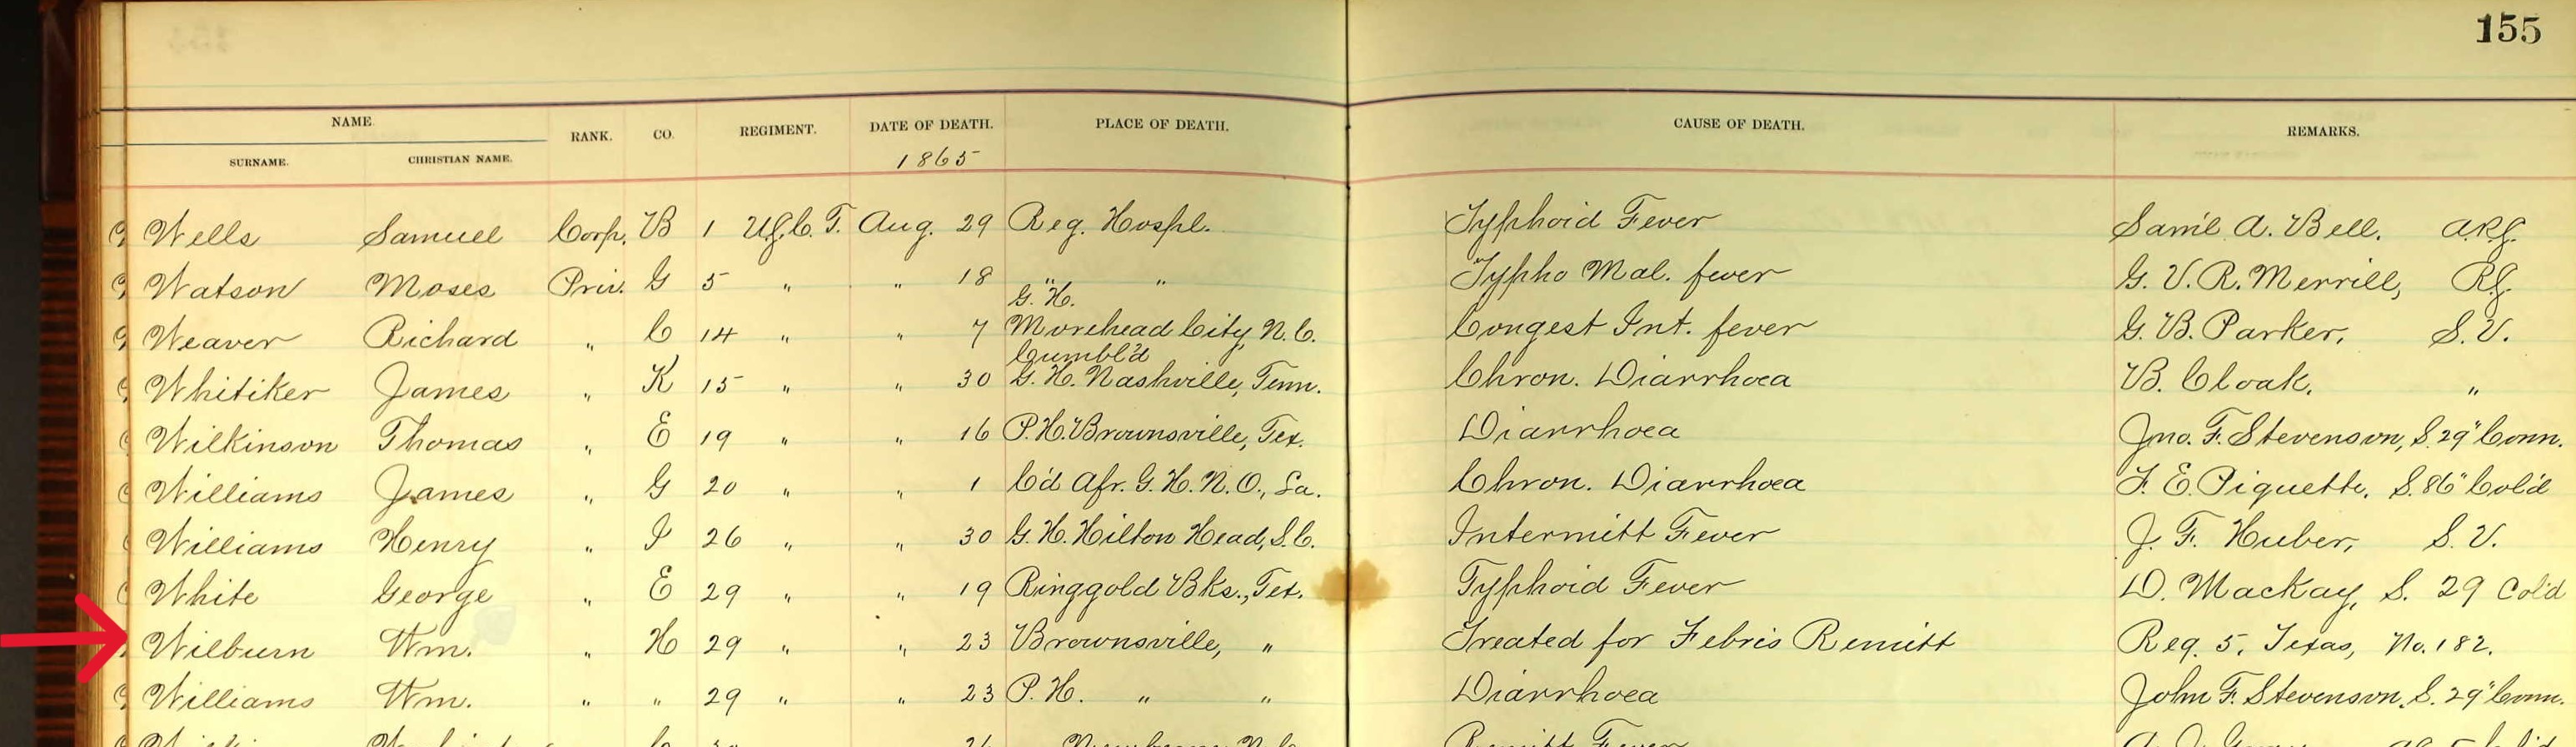 155
NAME. RANK. CO. REGIMENT. DATE OF DEATH. PLACE OF DEATH. CAUSE OF DEATH. REMARKS.
SURNAME. CHRISTIAN NAME. 1865
Wells Samuel Corp. B 1 U.S.C.T. Aug. 29 Reg. Hospl. Typhoid Fever Sam'l A. Bell. A.R.S.
Watson Moses Priv. G 5 " " 18 " " Typho Mal. fever G. V. R. Merrill, R.S.
G. H.
Weaver Richard " C 14 " " 7 Morehead City, N.C. Congest Int. fever G. B. Parker, S.V.
Cumbl'd
Whitiker James " K 15 " " 30 G. H. Nashville, Tenn. Chron. Diarrhoea B. Cloak, "
Wilkinson Thomas " E 19 " " 16 P. H. Brownsville, Tex. Diarrhoea Jno. F. Stevenson, S. 29" Conn.
Williams James " G 20 " " 1 C'd Afr. G. H. N. O., La. Chron. Diarrhoea F. E. Piquette, S. 86" Col'd
Williams Henry " I 26 " " 30 G. H. Hilton Head, S.C. Intermitt Fever J. F. Huber, S.V.
White George " E 29 " " 19 Ringgold Bks., Tex. Typhoid Fever D. Mackay, S. 29 Col'd
Wilburn Wm. " H 29 " " 23 Brownsville, " Treated for Febris Remitt Reg. 5, Texas, No. 182.
Williams Wm. " " 29 " " 23 P. H. " " Diarrhoea John F. Stevenson, S. 29" Conn.